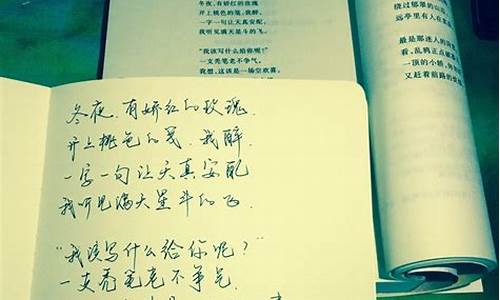 冬夜，有娇红的玫瑰
开上桃色的笺，我醉，
一字一句让天真安配
我听见满天星斗的飞。
“我该写什么给你呢？”
一支秃笔老不争气，
我想，这该是一场空欢喜。
绕过郁翠的山
远亭里有人在
最是那迷人的
看，乱鸦正点
一顶的小轿，
又赶着前路的
冬夜，有娇红的玫瑰，
开上桃色的笺，我醉，
一字一句让天真安配
我听见满天星斗的飞
“我该写什么给你呢？”
一支秃笔老不争气，